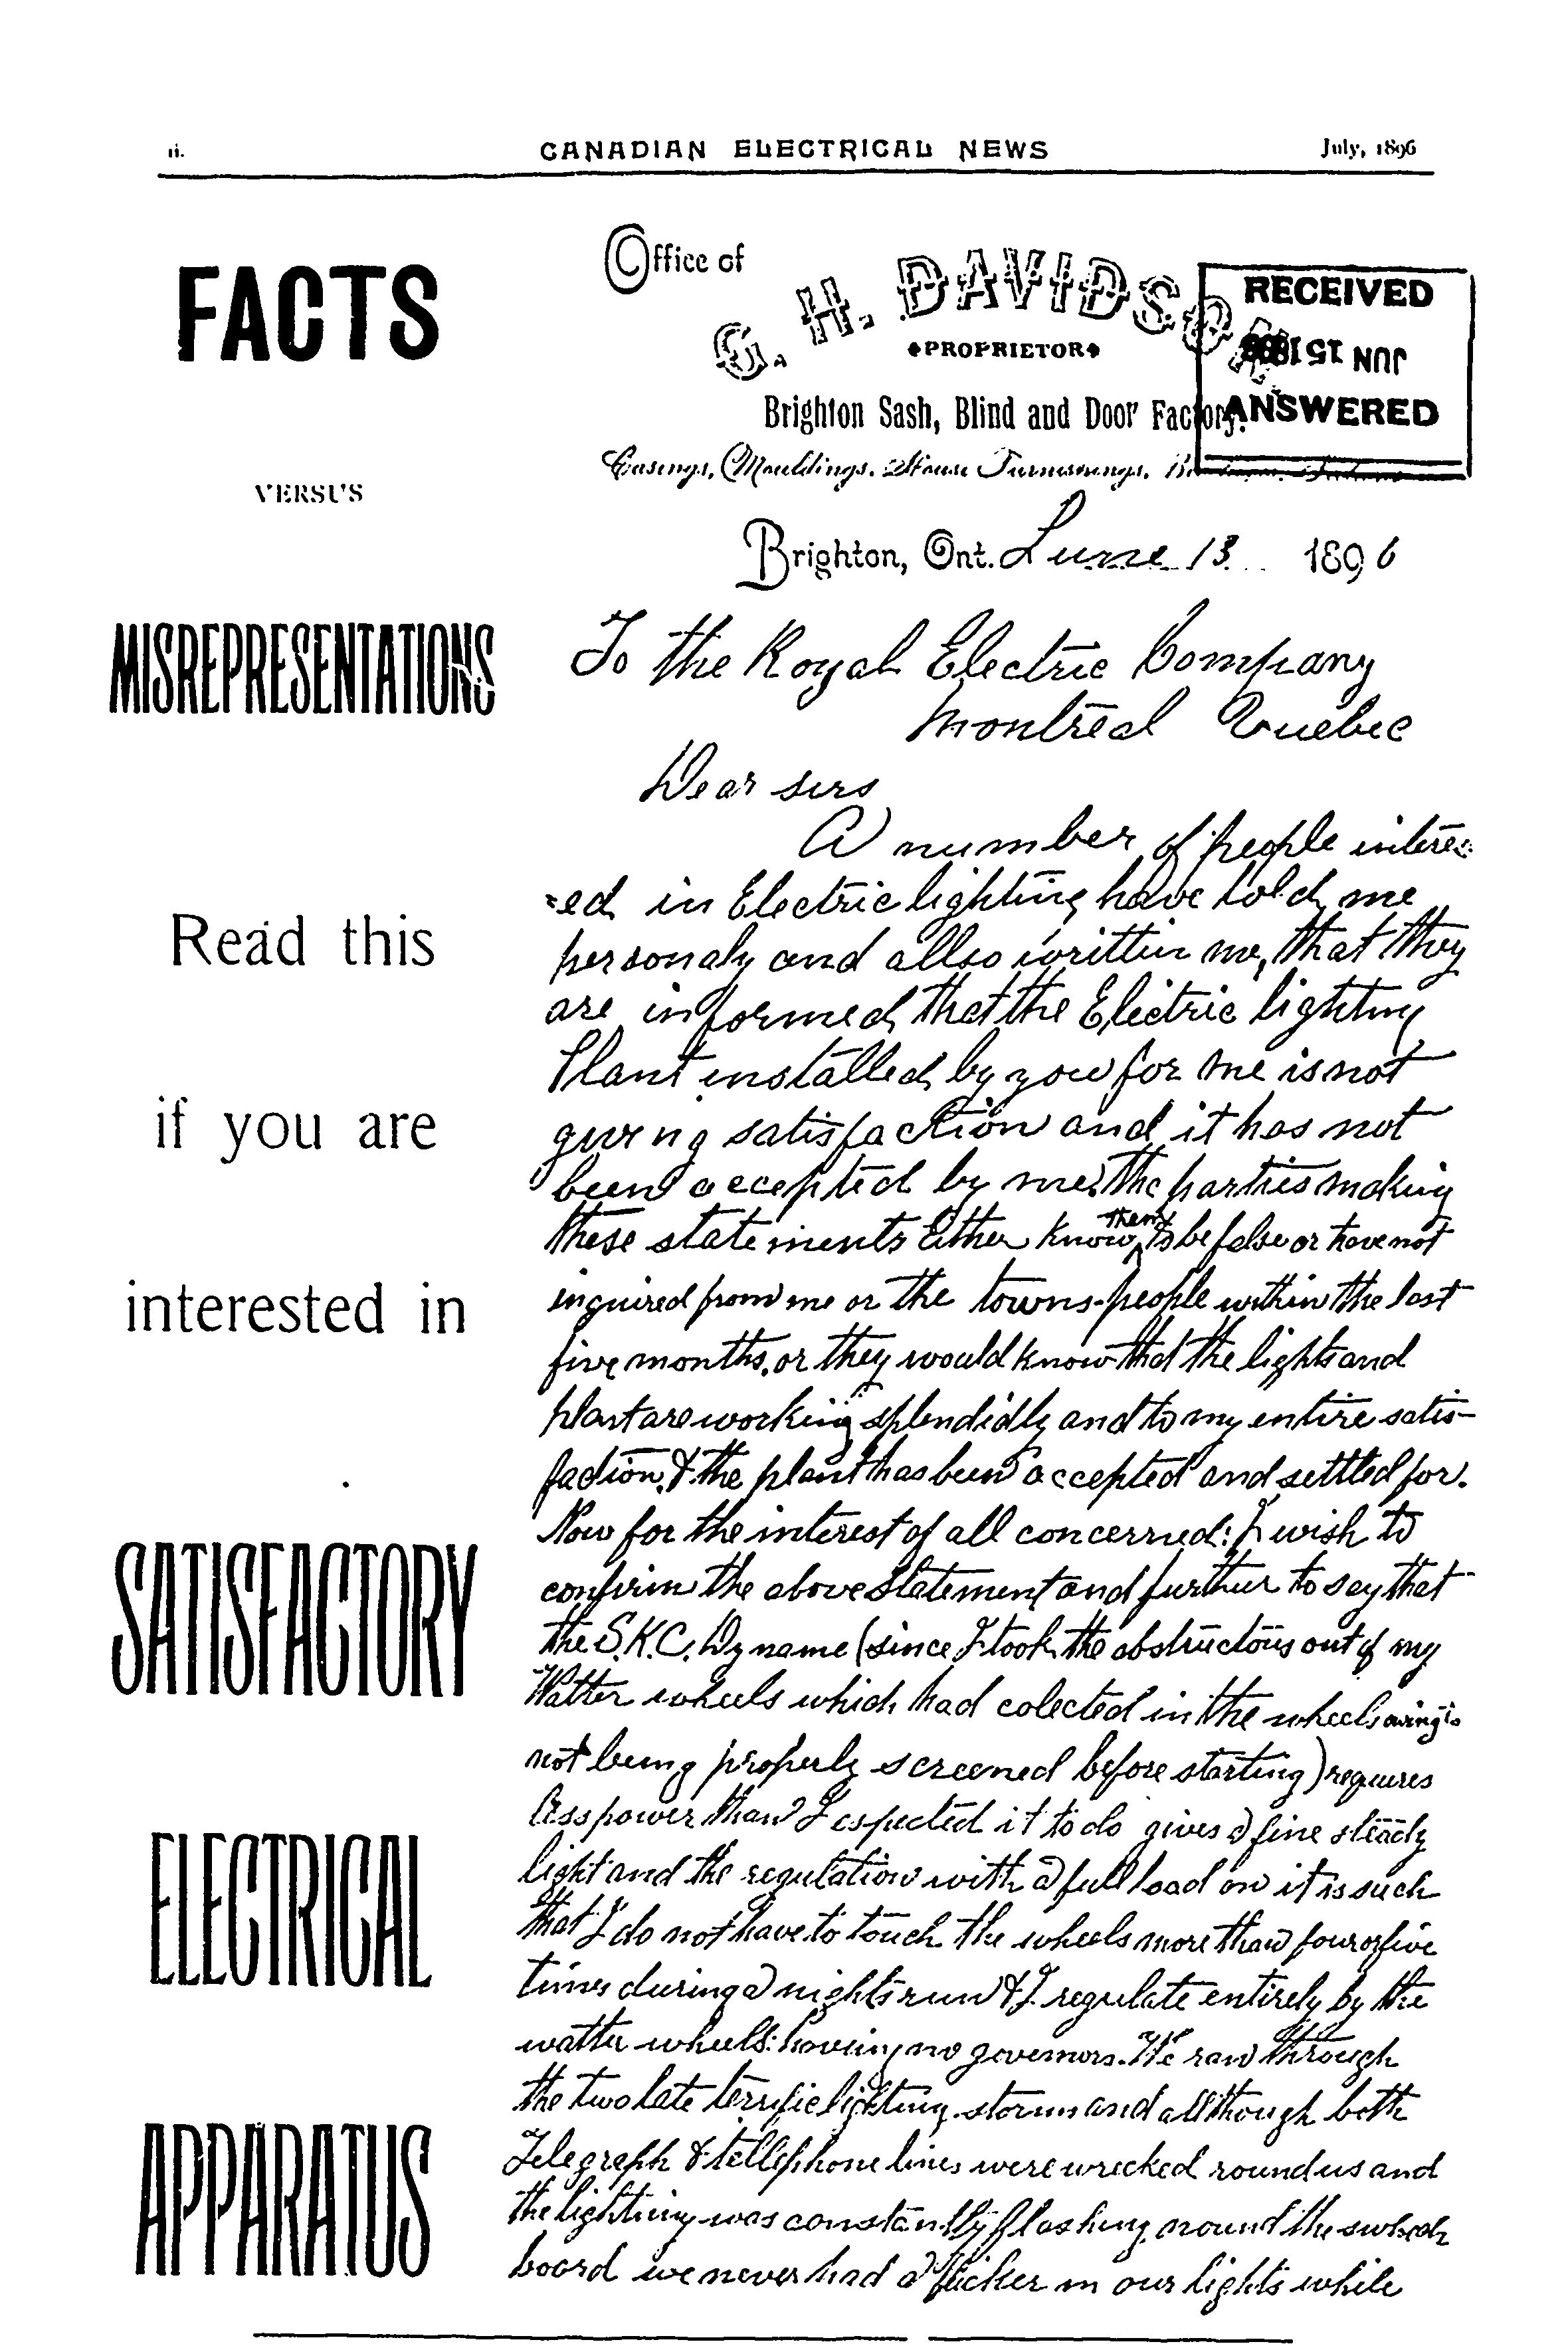 ii.
CANADIAN ELECTRICAL NEWS
July, 1896
FACTS
VERSUS
MISREPRESENTATIONS
Read this
if you are
interested in
SATISFACTORY
ELECTRICAL
APPARATUS
Office of
G. H. DAVIDSON
PROPRIETOR
Brighton Sash, Blind and Door Factory.
Casings, Mouldings, House Furnishings,
RECEIVED
JUN 15 1896
ANSWERED
Brighton, Ont. June 13 1896
To the Royal Electric Company
Montreal Quebec
Dear sirs
A number of people interes
=ed in Electric lighting have told me
personaly and allso writtin me, that they
are informed that the Electric lighting
Plant installed by you for me is not
giving satisfaction and it has not
been accepted by me. The parties making
these statements Either know them to be false or have not
inquired from me or the towns-people within the last
five months, or they would know that the lights and
plant are working splendidly and to my entire satis-
faction, & the plant has been accepted and settled for.
Now for the interest of all concerned: I wish to
confirm the above statement and further to say that
the S.K.C. Dyname (since I took the obstructions out of my
Watter wheels which had colected in the wheels owing to
not being properly screened before starting) requires
less power than I expected it to do gives a fine steady
light and the regulation with a full load on it is such
that I do not have to touch the wheels more than four or five
times during a nights run & I regulate entirely by the
watter wheels: having no governors. We ran through
the two late terrific lighting storms and allthough both
Telegraph & tellephone lines were wrecked round us and
the lightning was constantly flashing around the switch
board we never had a flicker in our lights while